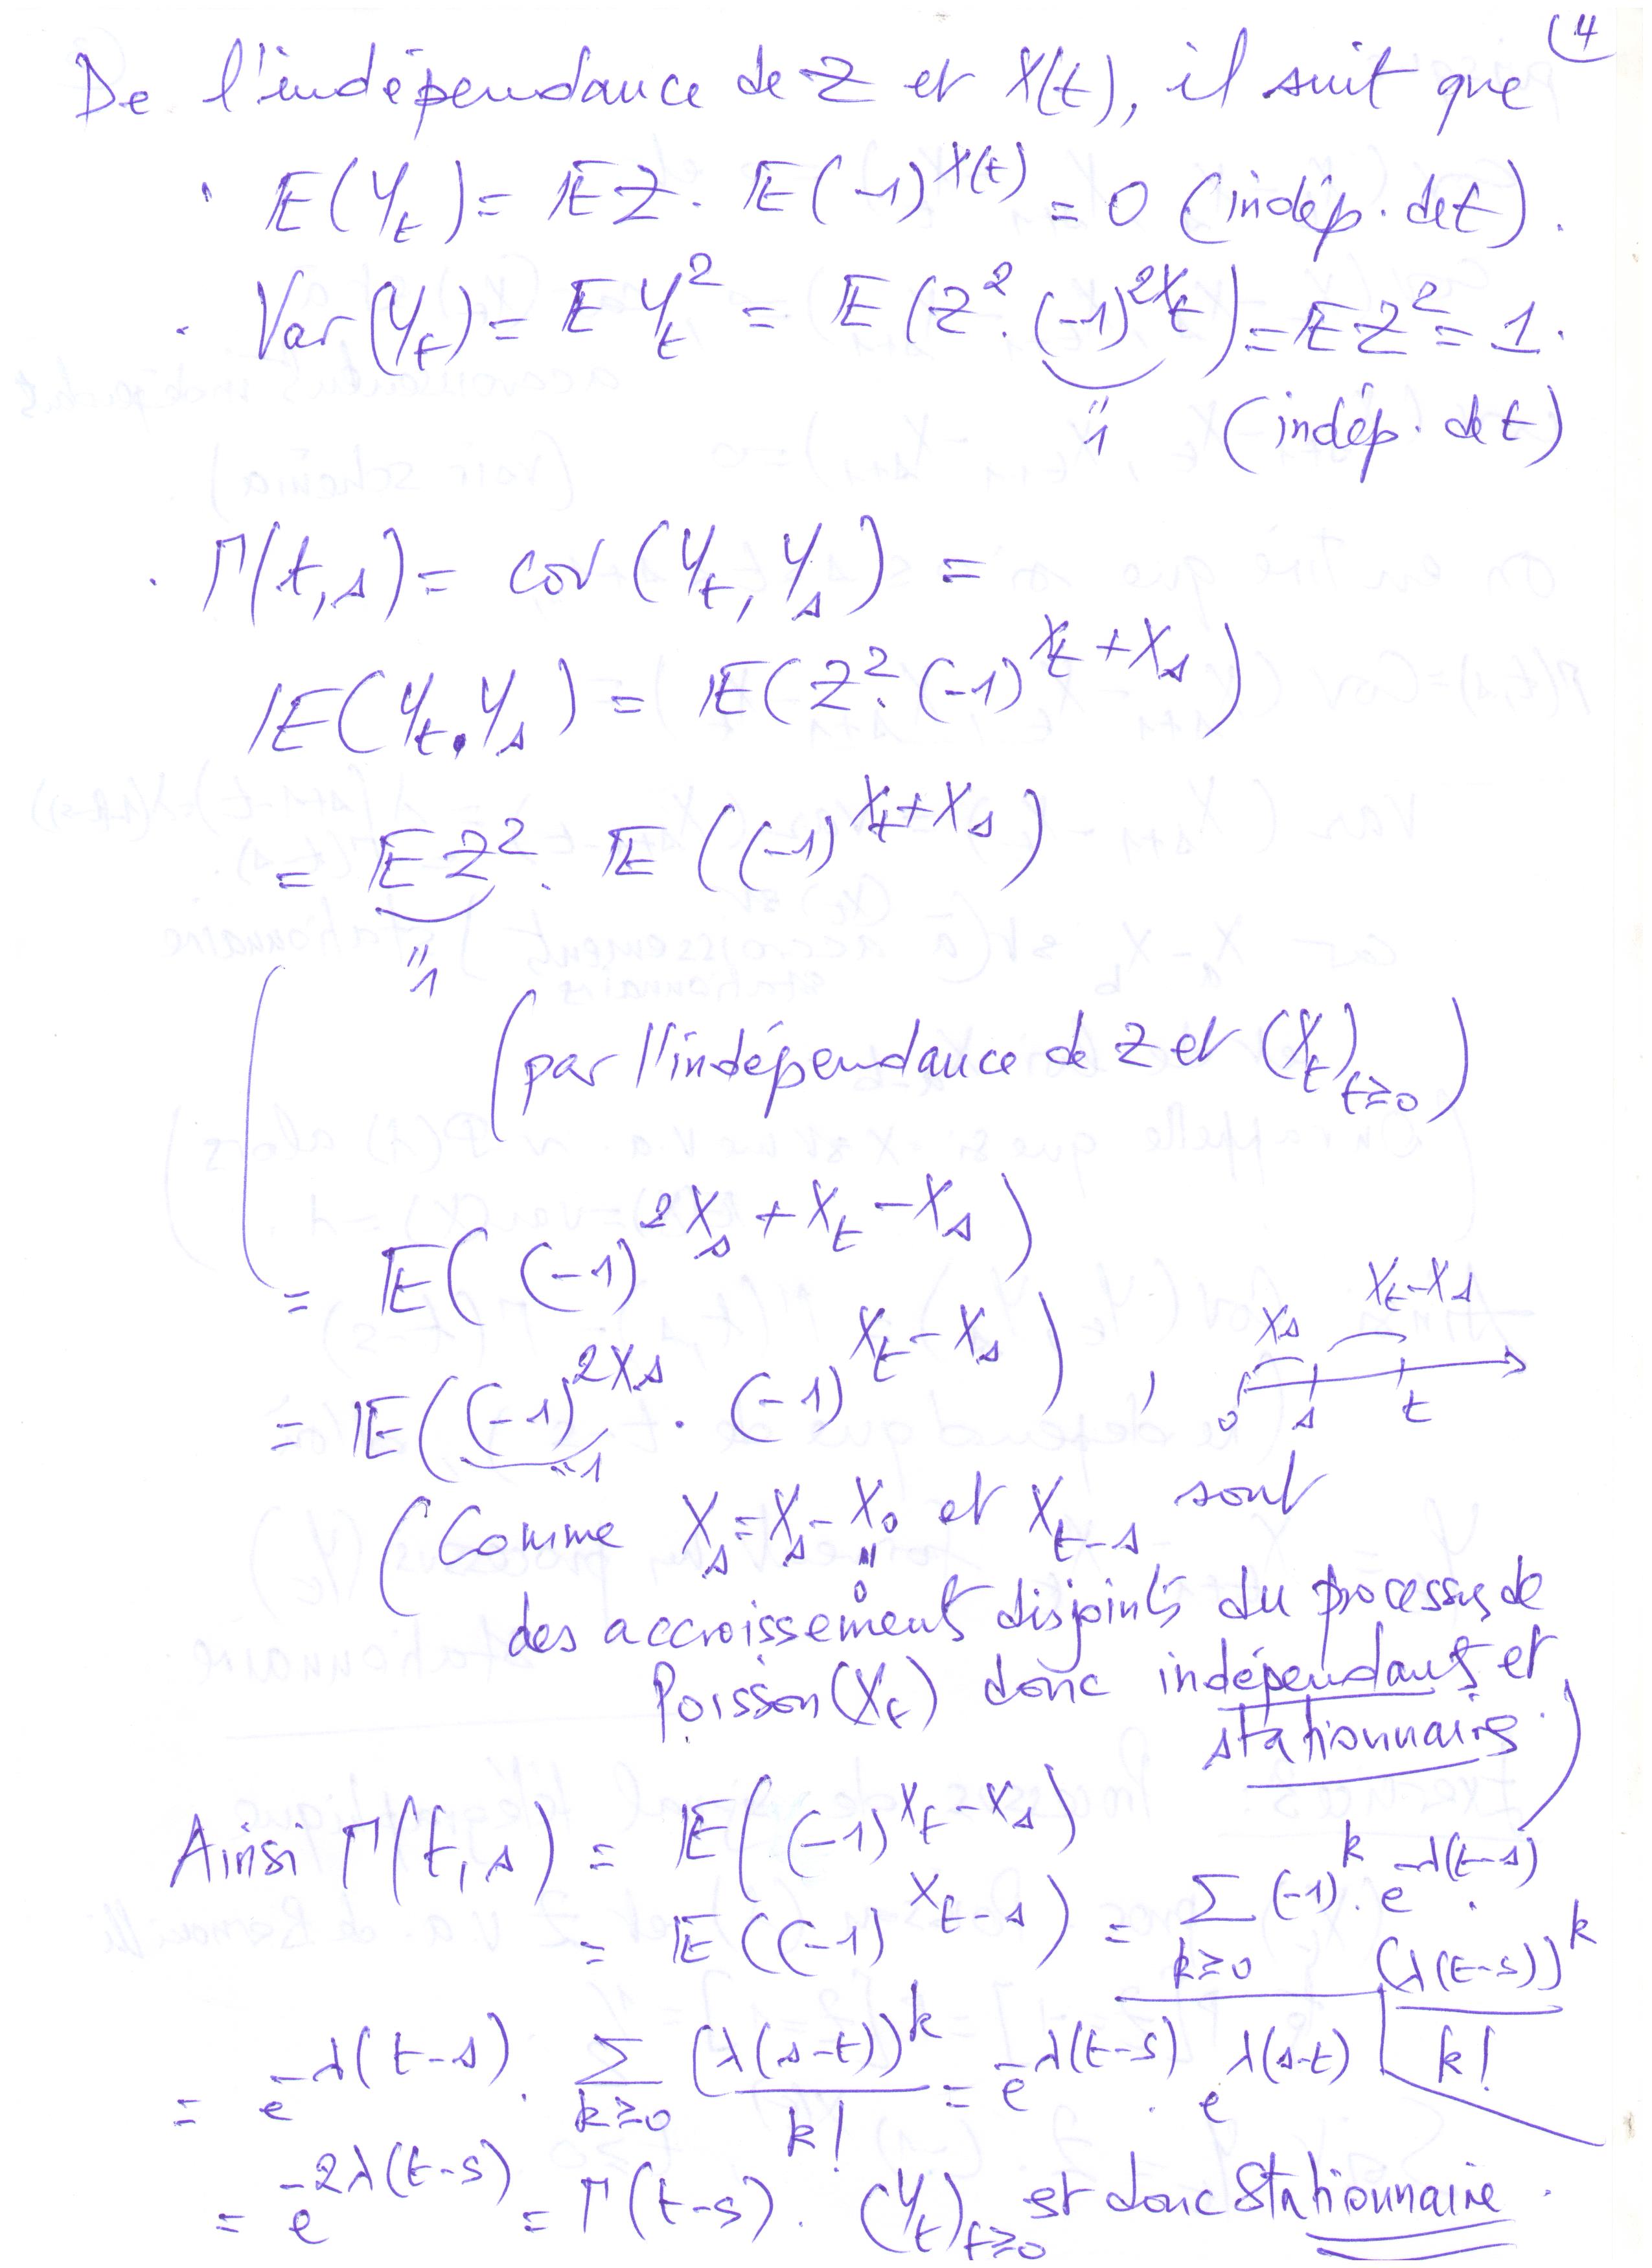 (4
De l'indépendance de Z et X(t), il suit que
· E(Y_t) = EZ · E(-1)^{X(t)} = 0 (indép. de t).
· Var(Y_t) = E Y_t^2 = E(Z^2 · (-1)^{2X_t}) = EZ^2 = 1.
"1 (indép. de t)
· Γ(t,s) = cov(Y_t, Y_s) =
E(Y_t.Y_s) = E(Z^2.(-1)^{X_t+X_s})
= EZ^2 · E((-1)^{X_t+X_s})
"1
(par l'indépendance de Z et (X_t)_{t≥0})
= E((-1)^{2X_s+X_t-X_s})
X_s X_t-X_s
= E((-1)^{2X_s} · (-1)^{X_t-X_s}) ,
0 s t
"1
(Comme X_s = X_s - X_0 et X_{t-s} sont
"0
des accroissements disjoints du processus de
Poisson (X_t) donc indépendants et
stationnaires.)
Ainsi Γ(t,s) = E((-1)^{X_t-X_s})
= E((-1)^{X_{t-s}}) = Σ_{k≥0} (-1)^k · e^{-λ(t-s)} · (λ(t-s))^k / k!
= e^{-λ(t-s)} · Σ_{k≥0} (λ(s-t))^k / k! = e^{-λ(t-s)} · e^{λ(s-t)}
= e^{-2λ(t-s)} = Γ(t-s). (Y_t)_{t≥0} est donc stationnaire.